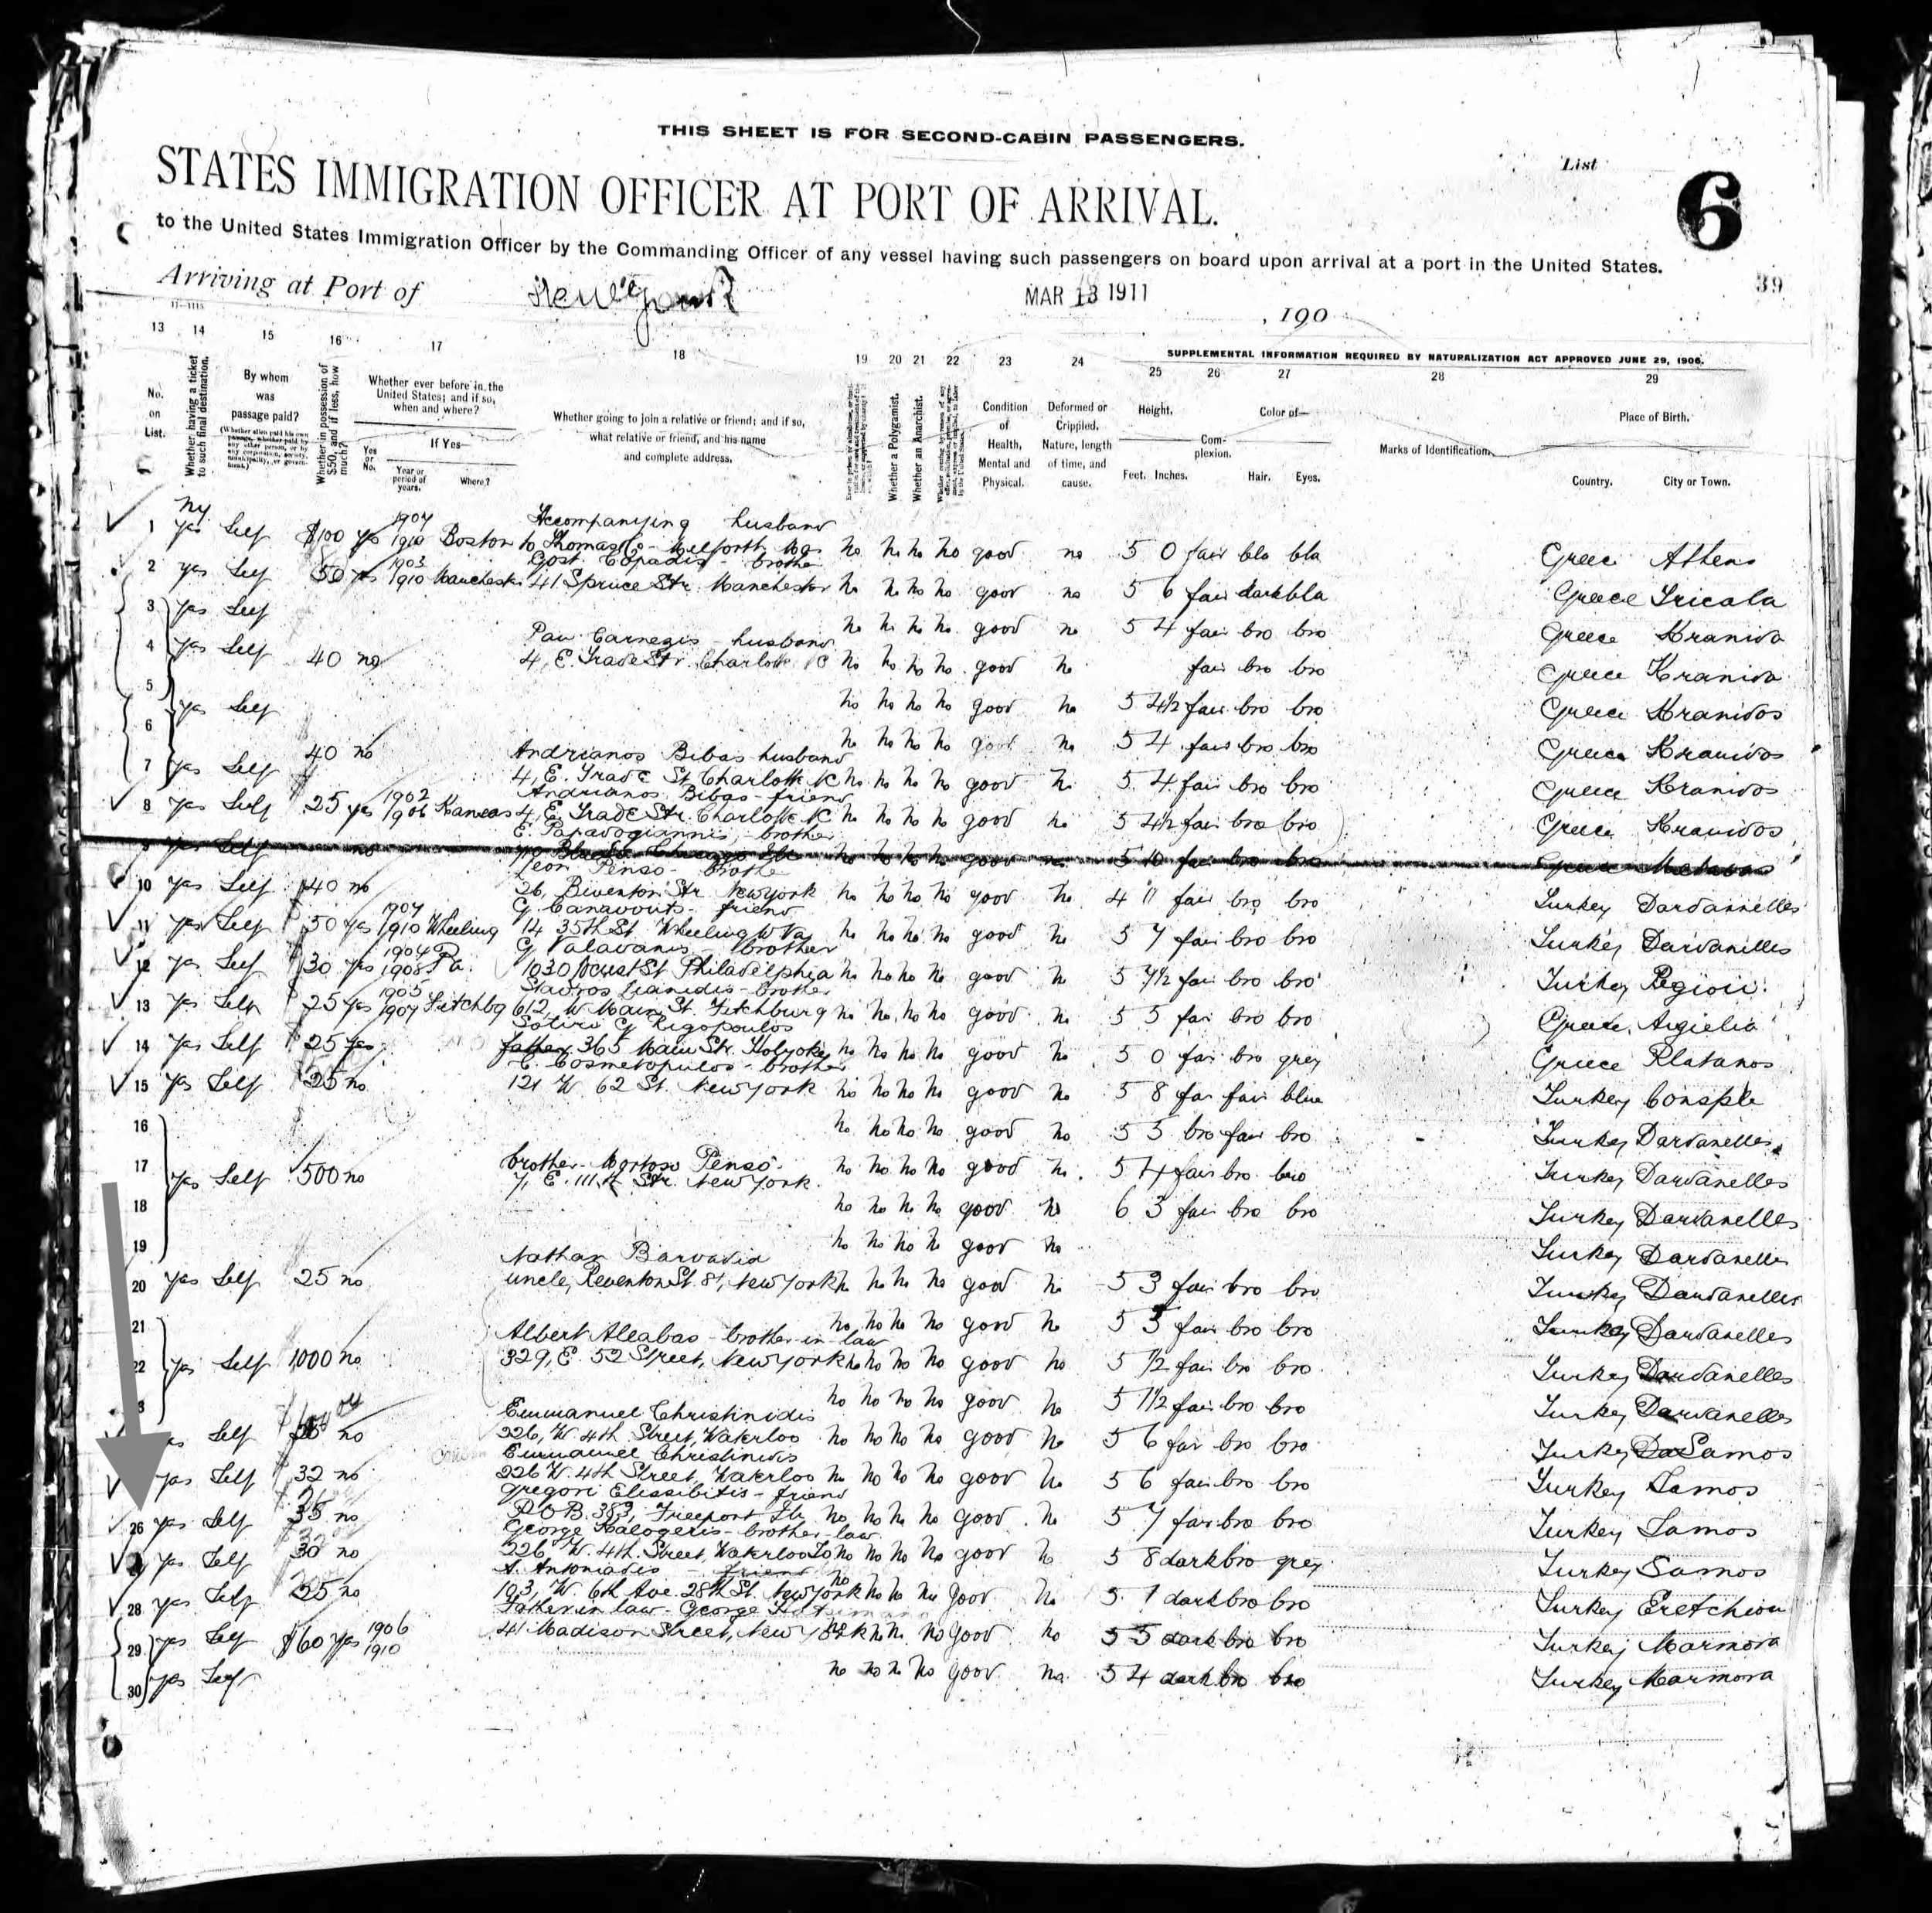 THIS SHEET IS FOR SECOND-CABIN PASSENGERS.
List 6
STATES IMMIGRATION OFFICER AT PORT OF ARRIVAL.
to the United States Immigration Officer by the Commanding Officer of any vessel having such passengers on board upon arrival at a port in the United States.
39
Arriving at Port of New York MAR 13 1911 , 190
13 14 15 16 17 18 19 20 21 22 23 24 25 26 27 28 29
SUPPLEMENTAL INFORMATION REQUIRED BY NATURALIZATION ACT APPROVED JUNE 29, 1906.
No. on List.
Whether having a ticket to such final destination.
By whom was passage paid?
Whether in possession of $50, and if less, how much?
Whether ever before in the United States; and if so, when and where?
Yes or No.
If Yes—
Year or period of years.
Where?
Whether going to join a relative or friend; and if so, what relative or friend, and his name and complete address.
Whether a Polygamist.
Whether an Anarchist.
Condition of Health, Mental and Physical.
Deformed or Crippled. Nature, length of time, and cause.
Height.
Feet. Inches.
Complexion.
Color of—
Hair. Eyes.
Marks of Identification.
Place of Birth.
Country. City or Town.
ny
Accompanying husband
1 yes Self $100 yes 1907 1910 Boston no no no good no 5 0 fair bla bla Greece Athens
2 yes Self 50 yes 1903 1910 Manchester brother 41 Spruce Str. Manchester no no no no good no 5 6 fair dark bla Greece Tricala
3 yes Self no no no no good no 5 4 fair bro bro Greece
Pan Carnezis - husband
4 yes Self 40 no 4, E. Trade Str. Charlotte NC no no no no good no fair bro bro Greece
5 yes Self no no no no good no 5 4½ fair bro bro Greece Kranidos
6 40 no no no no no good no 5 4 fair bro bro Greece Kranidos
Andrianos Bibas husband
7 yes Self 4, E. Trade St. Charlotte NC no no no no good no 5 4 fair bro bro Greece Kranidos
Andrianos Bibas - friend
8 yes Self 25 yes 1902 1906 Kansas 4, E. Trade Str. Charlotte NC no no no no good no 5 4½ fair bro bro Greece Kranidos
E. Papadogiannis - brother
9 yes Self no no no no no good no 5 10 fair bro bro Greece
Leon Penso - brother
10 yes Self $40 no 26, Str New York no no no no good no 4 11 fair bro bro Turkey Dardannelles
friend
11 yes Self 50 yes 1907 1910 Wheeling 14 35th St. Wheeling W Va no no no no good no 5 7 fair bro bro Turkey Dardanelles
G Valavanis - brother
12 yes Self 30 yes 1904 1908 Pa. 1030 Locust St Philadelphia no no no no good no 5 7½ fair bro bro Turkey
Stavros - brother
13 yes Self 25 yes 1905 1907 Fitchbg 612, W Main St. Fitchburg no no no no good no 5 5 fair bro bro Greece
Sotiri G Rigopoulos
14 yes Self 25 yes father 365 Main Str. Holyoke no no no no good no 5 0 fair bro grey Greece Platanos
C. Cosmetopulos - brother
15 yes Self $25 no 121 W. 62 St. New York no no no no good no 5 8 fair fair blue Turkey Consple
16 no no no no good no 5 5 bro fair bro Turkey Dardanelles
brother - Penso
17 yes Self 500 no 7, E. 111th Str. New York. no no no no good no 5 4 fair bro bro Turkey Dardanelles
18 no no no no good no 6 3 fair bro bro Turkey Dardanelles
19 no no no no good no Turkey Dardanelles
Nathan
20 yes Self 25 no uncle, St. 81, New York no no no no good no 5 3 fair bro bro Turkey Dardanelles
21 no no no no good no 5 5 fair bro bro Turkey Dardanelles
Albert Aleabas - brother in law
22 yes Self 1000 no 329, E. 52 Street, New York no no no no good no 5 ½ fair bro bro Turkey Dardanelles
3 no no no no good no 5 1½ fair bro bro Turkey Dardanelles
Emmanuel Christinidis
Self no 226, W. 4th Street, Waterloo no no no no good no 5 6 fair bro bro Turkey Samos
Emmanuel Christinidis
yes Self 32 no 226 W. 4th Street, Waterloo no no no no good no 5 6 fair bro bro Turkey Samos
Gregori Elissibitis - friend
26 yes Self 35 no P.O.B. 383, Freeport no no no no good no 5 7 fair bro bro Turkey Samos
George Kalogeris - brother law
yes Self 30 no 226 W. 4th. Street, Waterloo Io no no no no good no 5 8 dark bro grey Turkey Samos
A. Antoniadis - friend
28 yes Self 25 no 103, W. 6th Ave. 28th St. New York no no no no good no 5 7 dark bro bro Turkey
Father in law - George
29 yes Self $60 yes 1906 1910 41 Madison Street, New York no no no good no 5 5 dark bro bro Turkey Marmora
30 yes Self no no no no good no 5 4 dark bro bro Turkey Marmora